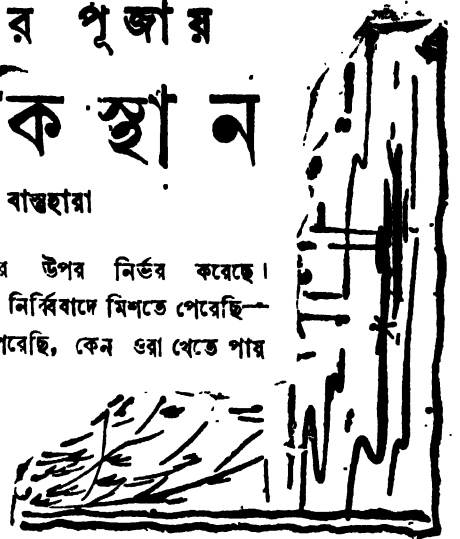 র পূজায়
কিস্থান
বাস্তুহারা
র উপর নির্ভর করেছে।
নির্ব্বিবাদে মিশতে পেরেছি—
পেরেছি, কেন ওরা খেতে পায়